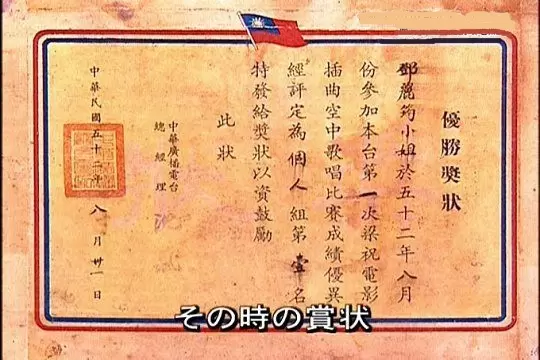 優勝獎狀
鄧麗筠小姐於五十二年八月
份參加本台第一次梁祝電影
插曲空中歌唱比賽成績優異
經評定為個人組第壹名
特發給獎狀以資鼓勵
此狀
中華廣播電台
總經理
中華民國五十二年八月卅一日
その時の賞状